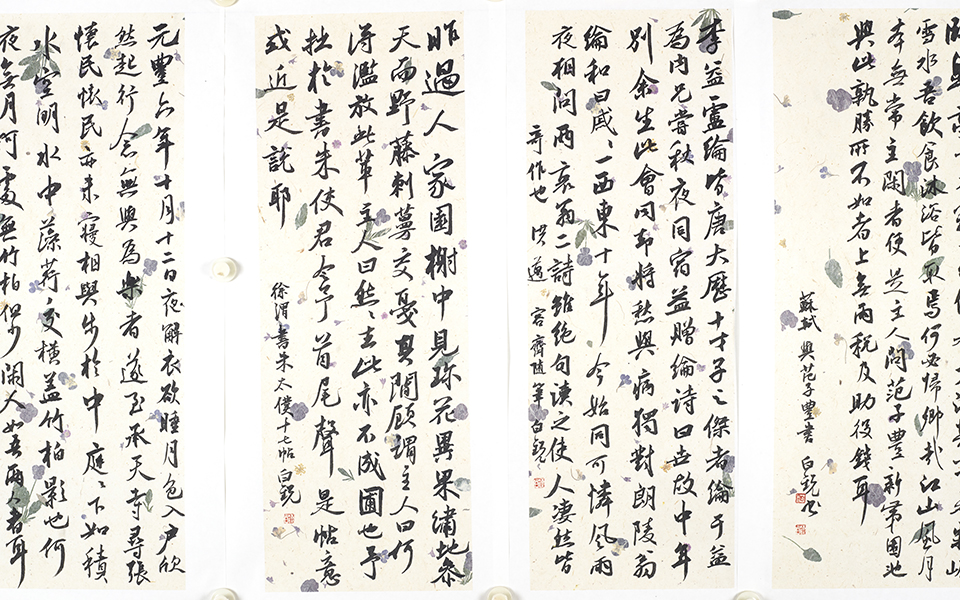 雪水吾飲食沐浴皆取焉何必歸鄉哉江山風月
本無常主閑者便是主人問范子豐新第園池
與此孰勝所不如者上無兩税及助役錢耳
蘇軾與范子豐書 白銳書
李益盧綸皆唐大歷十才子之傑者綸于益
為内兄嘗秋夜同宿益贈綸詩曰世故中年
別余生此會同却將愁與病獨對朗陵翁
綸和曰戚々一西東十年今始同可憐風雨
夜相問兩衰翁二詩雖絶句讀之使人凄然皆
奇作也 洪邁容齋隨筆 白銳
昨過人家園榭中見珍花異果繡地參
天而野藤刺蔓交戛其間顧謂主人曰何
得濫放此輩主人曰然々去此亦不成圃也予
拙於書朱使君令予首尾聲是帖意
或近是説耶
徐渭書朱太僕十七帖 白銳
元豐六年十月十二日夜解衣欲睡月色入户欣
然起行念無與為樂者遂至承天寺尋張
懷民懷民亦未寢相與步於中庭々下如積
水空明水中藻荇交橫蓋竹柏影也何
夜無月何處無竹柏但少閑人如吾兩人者耳